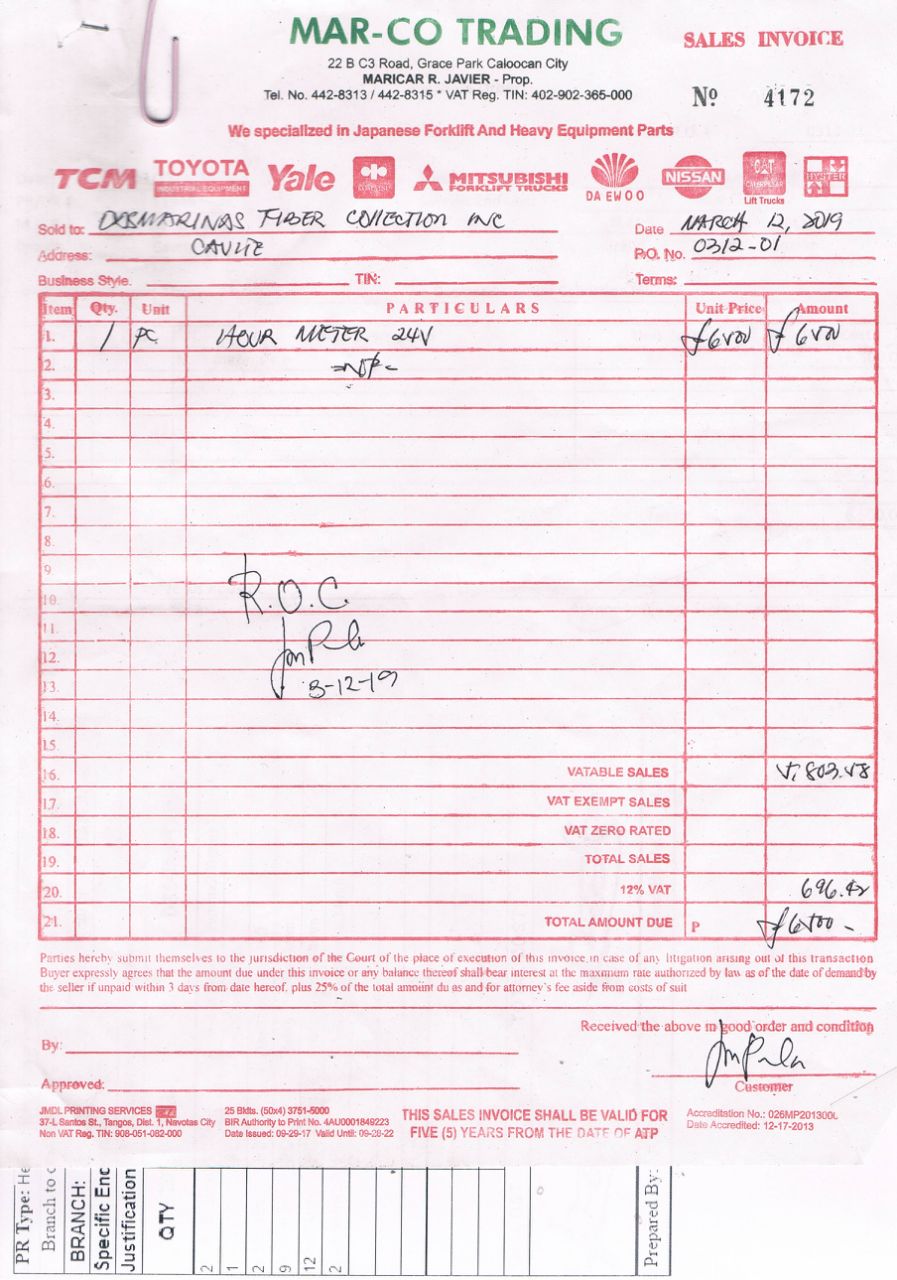 MAR-CO TRADING
SALES INVOICE
22 B C3 Road, Grace Park Caloocan City
MARICAR R. JAVIER - Prop.
Tel. No. 442-8313 / 442-8315 * VAT Reg. TIN: 402-902-365-000
Nº 4172
We specialized in Japanese Forklift And Heavy Equipment Parts
TCM TOYOTA INDUSTRIAL EQUIPMENT Yale KOMATSU MITSUBISHI FORKLIFT TRUCKS DAEWOO NISSAN CAT CATERPILLAR Lift Trucks HYSTER
Sold to: DASMARINAS FIBER COLLECTION INC Date MARCH 12, 2019
Address: CAVITE P.O. No. 0312-01
Business Style. TIN: Terms:
Item Qty. Unit PARTICULARS Unit Price Amount
1. 1 PC HOUR METER 24V ₱6500 ₱6500
2.
3.
4.
5.
6.
7.
8.
9
10. R.O.C.
11.
12.
13. 3-12-19
14.
15.
16. VATABLE SALES 5,803.58
17. VAT EXEMPT SALES
18. VAT ZERO RATED
19. TOTAL SALES
20. 12% VAT 696.42
21. TOTAL AMOUNT DUE P ₱6500-
Parties hereby submit themselves to the jurisdiction of the Court of the place of execution of this invoice in case of any litigation arising out of this transaction
Buyer expressly agrees that the amount due under this invoice or any balance thereof shall bear interest at the maximum rate authorized by law as of the date of demand by
the seller if unpaid within 3 days from date hereof. plus 25% of the total amount du as and for attorney's fee aside from costs of suit
Received the above in good order and condition
By:
Approved:
Customer
JMDL PRINTING SERVICES
37-L Santos St., Tangos, Dist. 1, Navotas City
Non VAT Reg. TIN: 908-051-082-000
25 Bklts. (50x4) 3751-5000
BIR Authority to Print No. 4AU0001849223
Date Issued: 09-29-17 Valid Until: 09-28-22
THIS SALES INVOICE SHALL BE VALID FOR
FIVE (5) YEARS FROM THE DATE OF ATP
Accreditation No.: 026MP2013000
Date Accredited: 12-17-2013
PR Type: He
Branch to c
BRANCH:
Specific Enc
Justification
QTY
2
1
2
9
12
2
Prepared By: